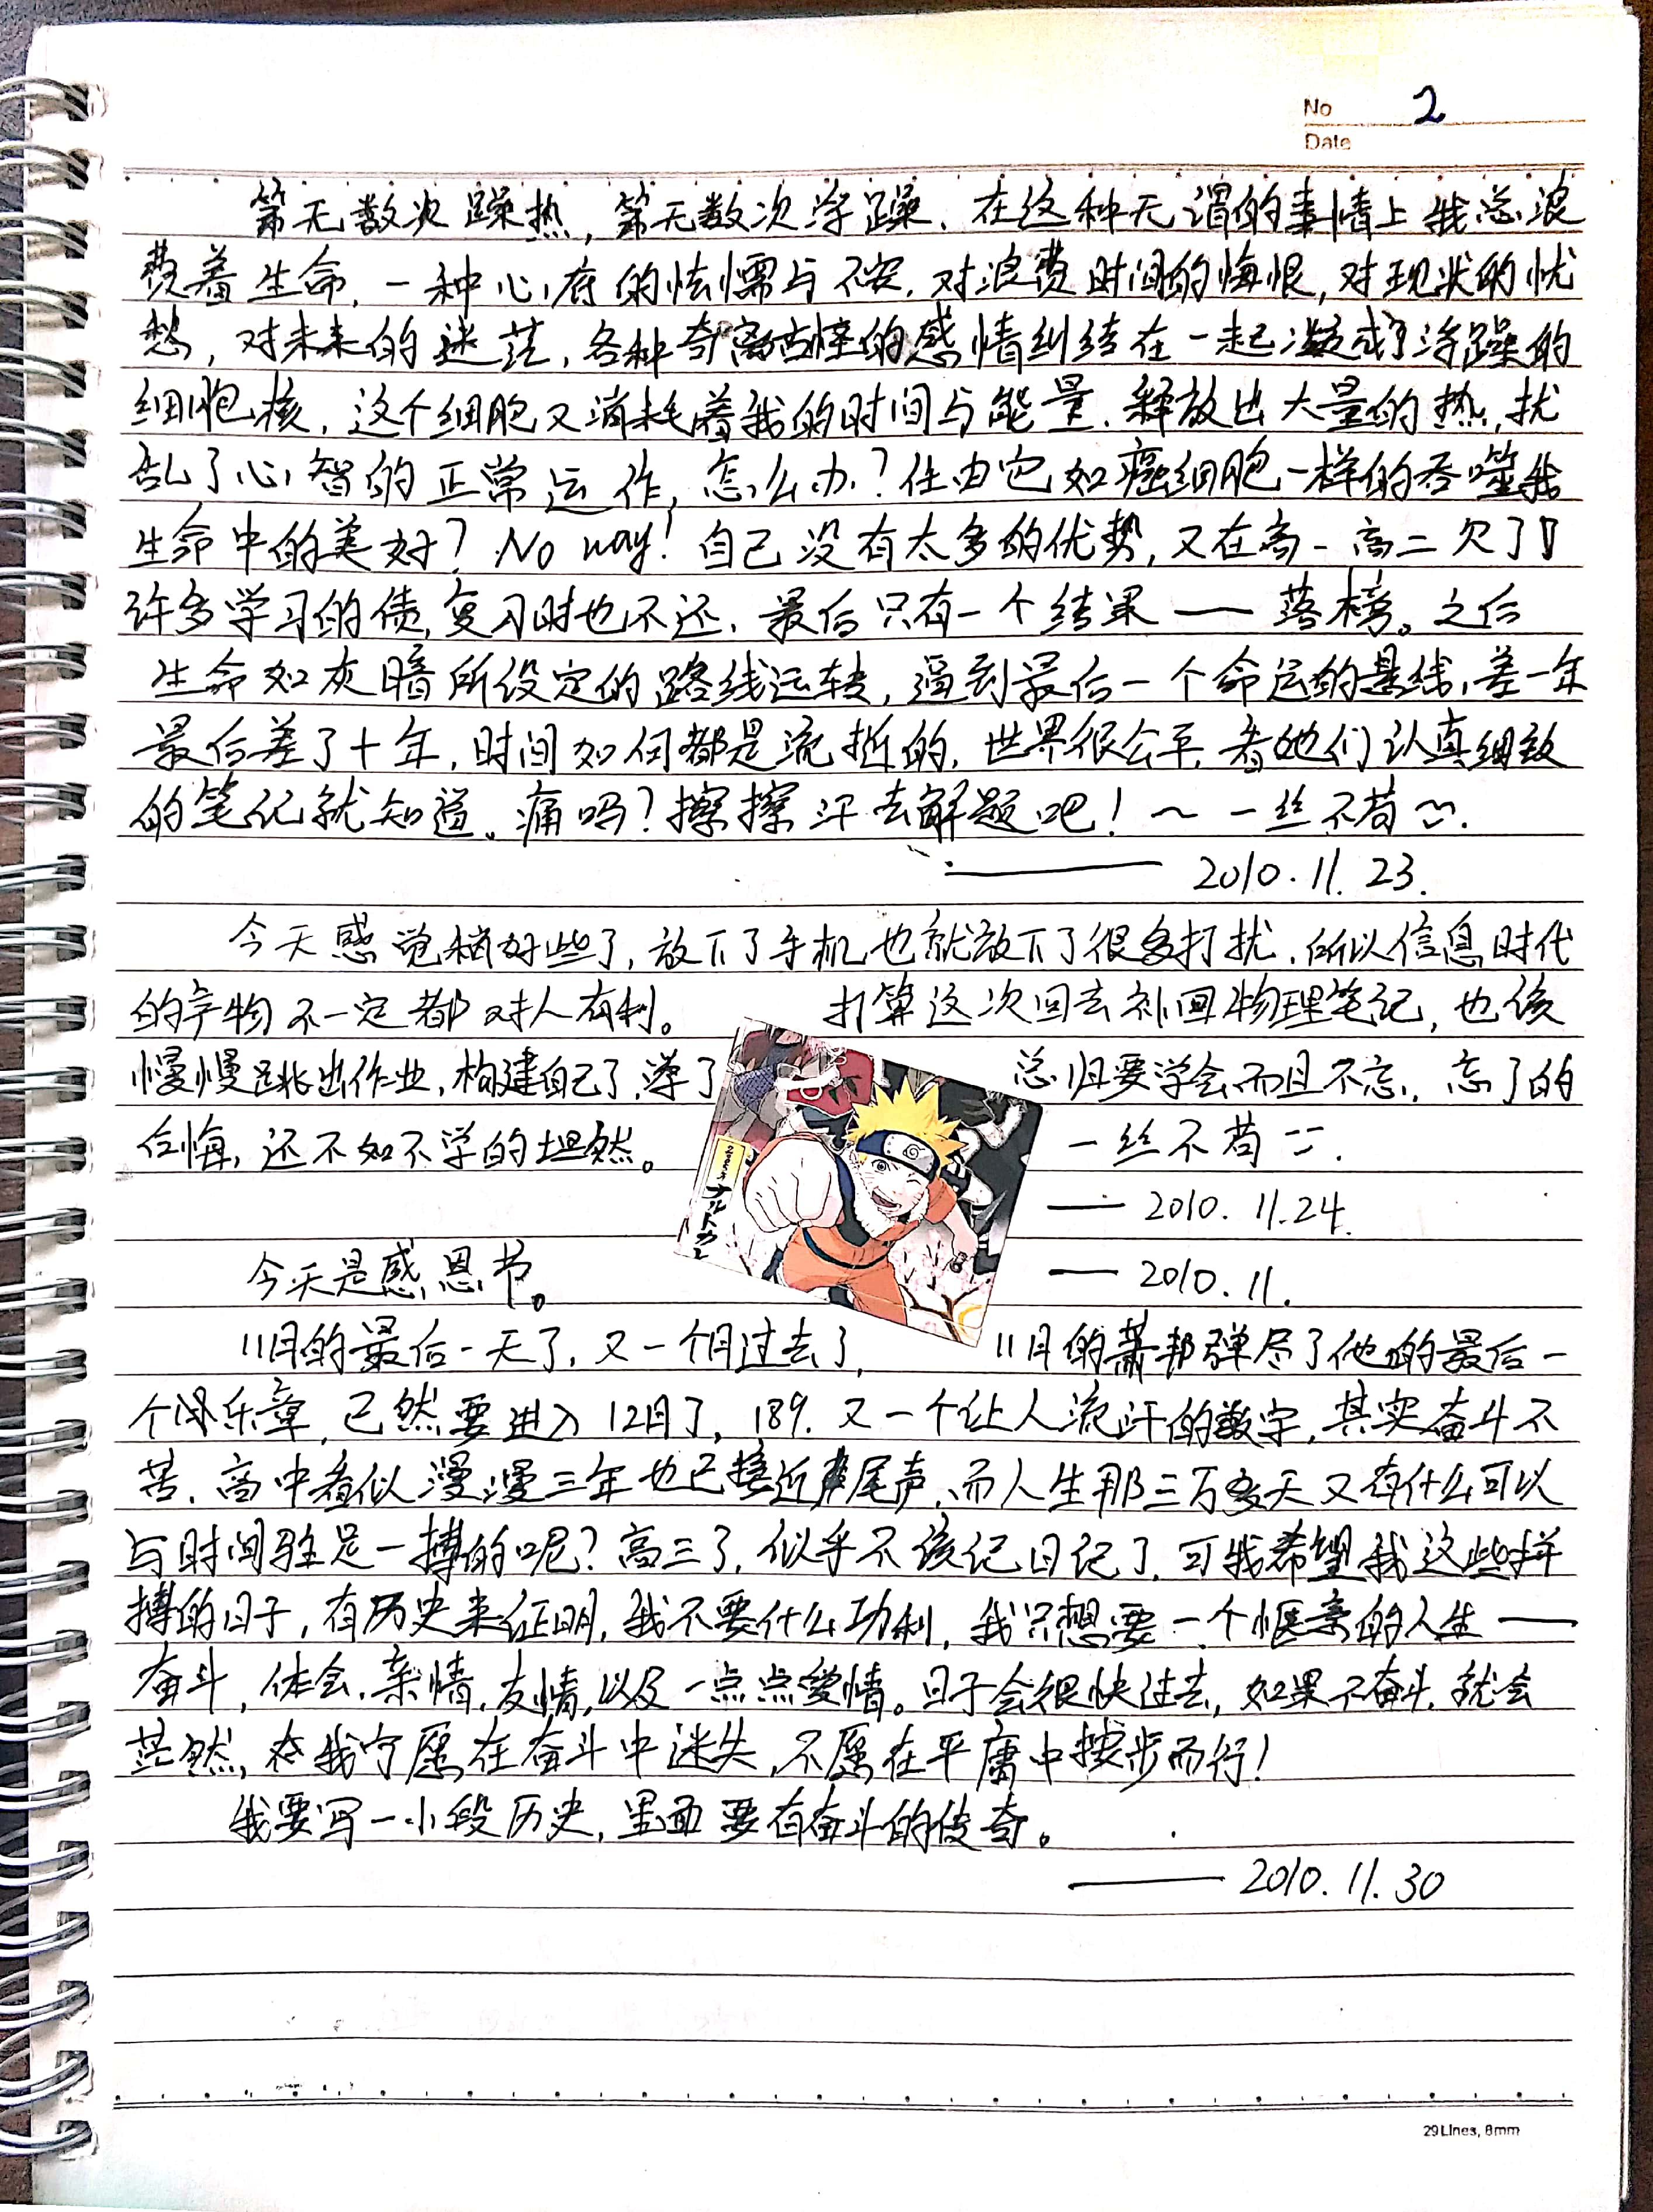 No 2
Date
第无数次躁热，第无数次浮躁．在这种无谓的事情上我总浪
费着生命，一种心府的怯懦与不安．对浪费时间的悔恨，对现状的忧
愁，对未来的迷茫，各种奇离古怪的感情纠结在一起凝成了浮躁的
细胞核，这个细胞又消耗着我的时间与能量．释放出大量的热，扰
乱了心智的正常运作，怎么办？任由它如癌细胞一样的吞噬我
生命中的美好？No way！自己没有太多的优势，又在高一高二欠了
许多学习的债，复习时也不还．最后只有一个结果——落榜。之后
生命如灰暗所设定的路线运转，逼到最后一个命运的悬线，差一年
最后差了十年，时间如何都是流逝的，世界很公平，看她们认真细致
的笔记就知道。痛吗？擦擦汗去解题吧！～一丝不苟～．
—— 2010.11.23.
今天感觉稍好些了，放下了手机也就放下了很多打扰．所以信息时代
的产物不一定都对人有利。 打算这次回去补回物理笔记，也该
慢慢跳出作业，构建自己了，学了 总归要学会而且不忘，忘了的
后悔，还不如不学的坦然。 一丝不苟
—— 2010.11.24.
今天是感恩节。 —— 2010.11.
ナルトカレ
11月的最后一天了，又一个月过去了， 11月的萧邦弹尽了他的最后一
个乐章，已然要进入12月了，189．又一个让人流汗的数字，其实奋斗不
苦．高中看似漫漫三年也已接近尾声，而人生那三万多天又有什么可以
与时间驻足一搏的呢？高三了，似乎不该记日记了，可我希望我这些拼
搏的日子，有历史来证明，我不要什么功利，我只想要一个惬意的人生——
奋斗，体会，亲情，友情，以及一点点爱情。日子会很快过去，如果不奋斗，就会
茫然，我宁愿在奋斗中迷失，不愿在平庸中按步而行！
我要写一小段历史，里面要有奋斗的传奇。
—— 2010.11.30
29Lines, 8mm